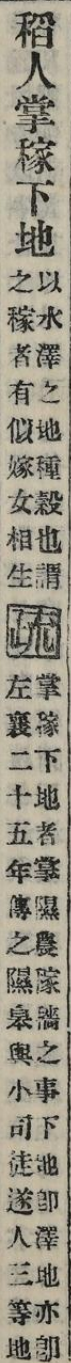 稻人掌稼下地
以水澤之地種穀也謂
之稼者有似嫁女相生
疏
掌稼下地者掌隰農稼穡之事下地卽澤地亦卽
左襄二十五年傳之隰皋與小司徒遂人三等地